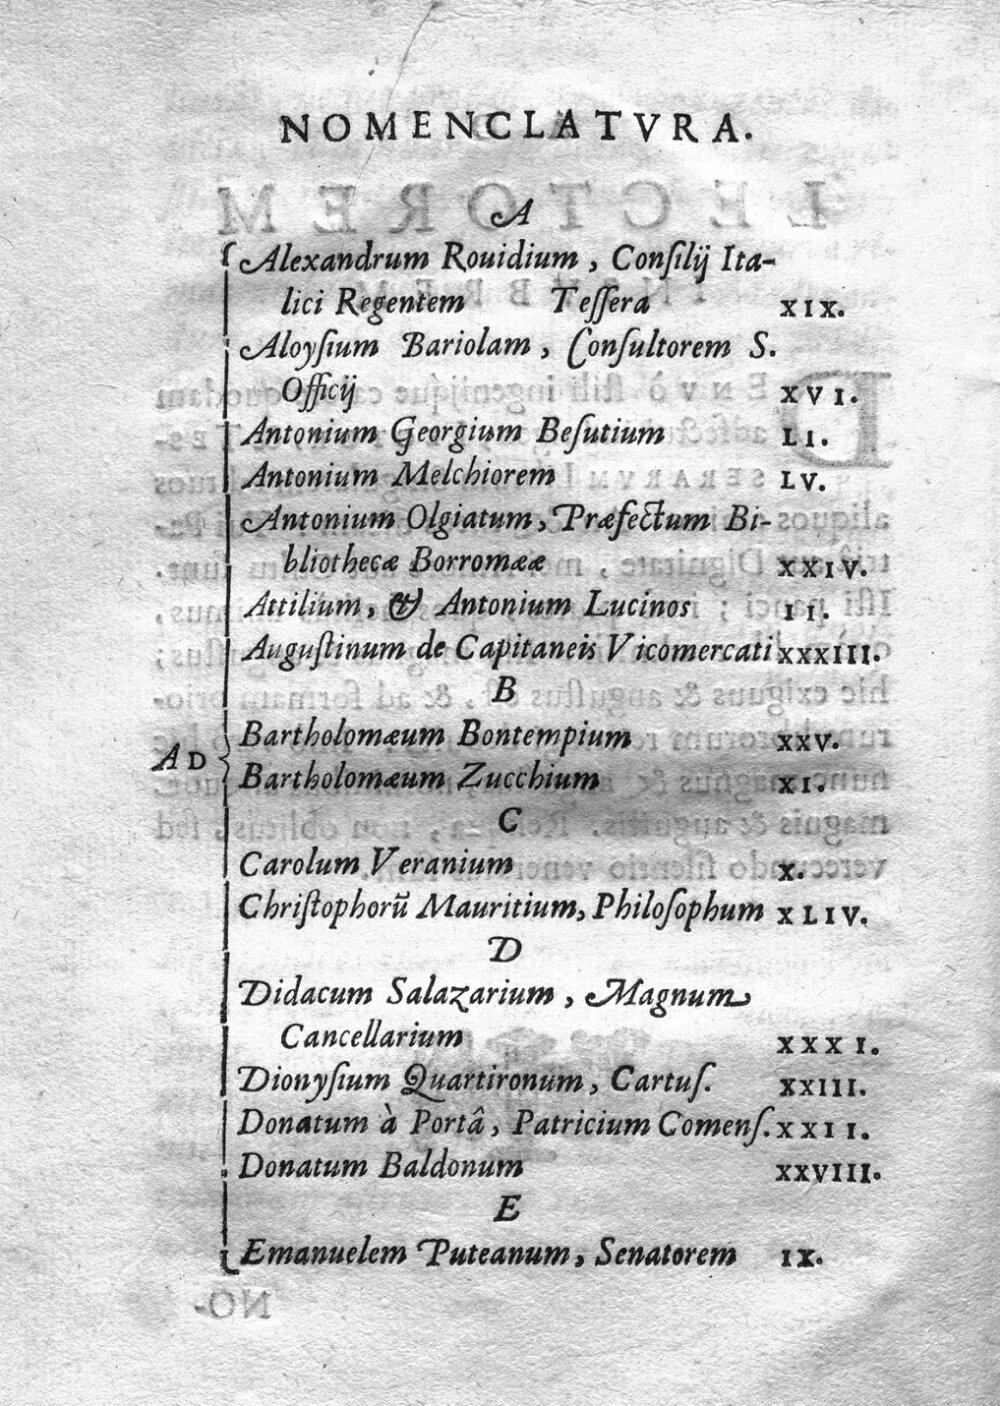 NOMENCLATVRA.
A
Alexandrum Rouidium, Conſilij Ita-
lici Regentem Teſſera XIX.
Aloyſium Bariolam, Conſultorem S.
Officij XVI.
Antonium Georgium Beſutium LI.
Antonium Melchiorem LV.
Antonium Olgiatum, Præfectum Bi-
bliothecæ Borromææ XXIV.
Attilium, & Antonium Lucinos II.
Auguſtinum de Capitaneis Vicomercati XXXIII.
B
AD
Bartholomæum Bontempium XXV.
Bartholomæum Zucchium XI.
C
Carolum Veranium X.
Chriſtophorũ Mauritium, Philoſophum XLIV.
D
Didacum Salazarium, Magnum
Cancellarium XXXI.
Dionyſium Quartironum, Cartuſ. XXIII.
Donatum à Portâ, Patricium Comenſ. XXII.
Donatum Baldonum XXVIII.
E
Emanuelem Puteanum, Senatorem IX.